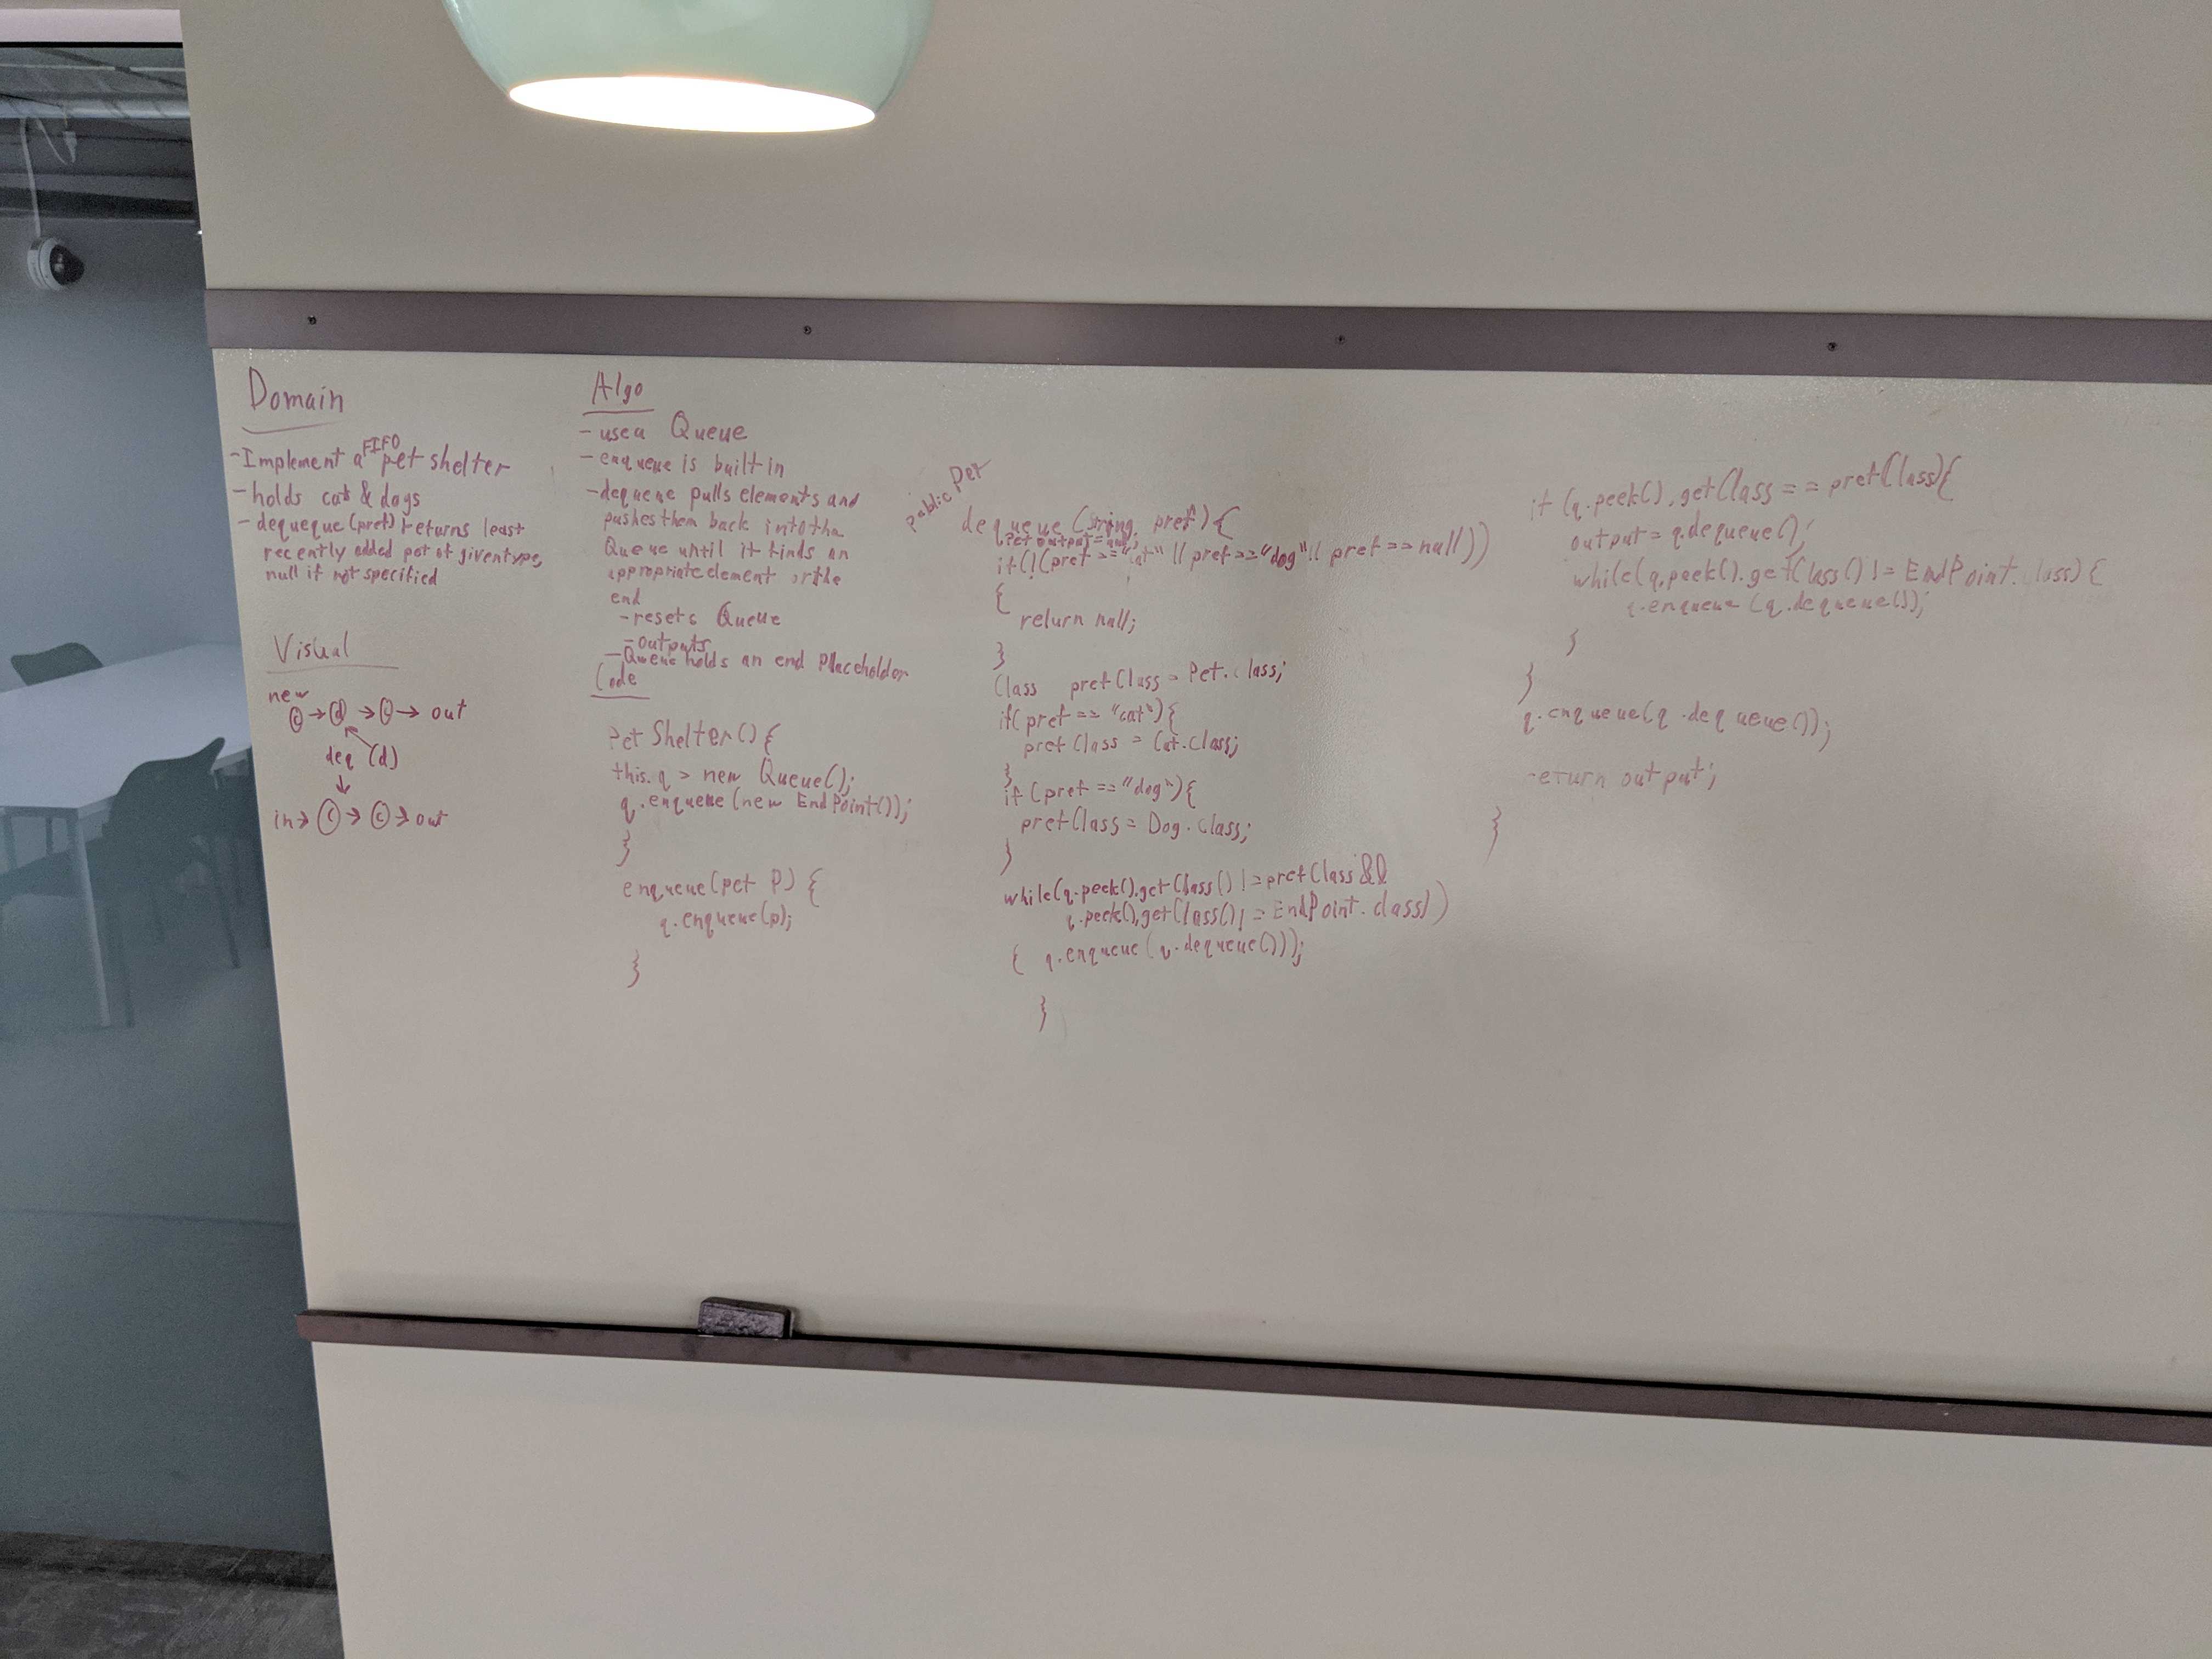 Domain
-Implement a FIFO pet shelter
-holds cat & dogs
-dequeque (pref) returns least
recently added pet of given type,
null if not specified
Visual
new
c → d → c → out
deq (d)
↓
in → c → c → out
Algo
-use a Queue
-enqueue is built in
-dequeue pulls elements and
pushes them back into tha
Queue until it finds an
appropriate element or the
end
-resets Queue
-outputs
-Queue holds an end Placeholder
Code
Pet Shelter() {
this.q = new Queue();
q.enqueue(new EndPoint());
}
enqueue(pet P) {
q.enqueue(p);
}
public Pet
dequeue (string pref) {
Pet output = null;
if(!(pref == "cat" || pref == "dog" || pref == null))
{
return null;
}
Class prefClass = Pet.class;
if(pref == "cat"){
prefClass = Cat.class;
}
if (pref == "dog"){
prefClass = Dog.class;
}
while(q.peek().getClass() != prefClass &&
q.peek().getClass() != EndPoint.class)
{ q.enqueue(q.dequeue());
}
if (q.peek().getClass == prefClass){
output = q.dequeue();
while(q.peek().getClass() != EndPoint.class) {
q.enqueue(q.dequeue());
}
}
q.enqueue(q.dequeue());
return output;
}